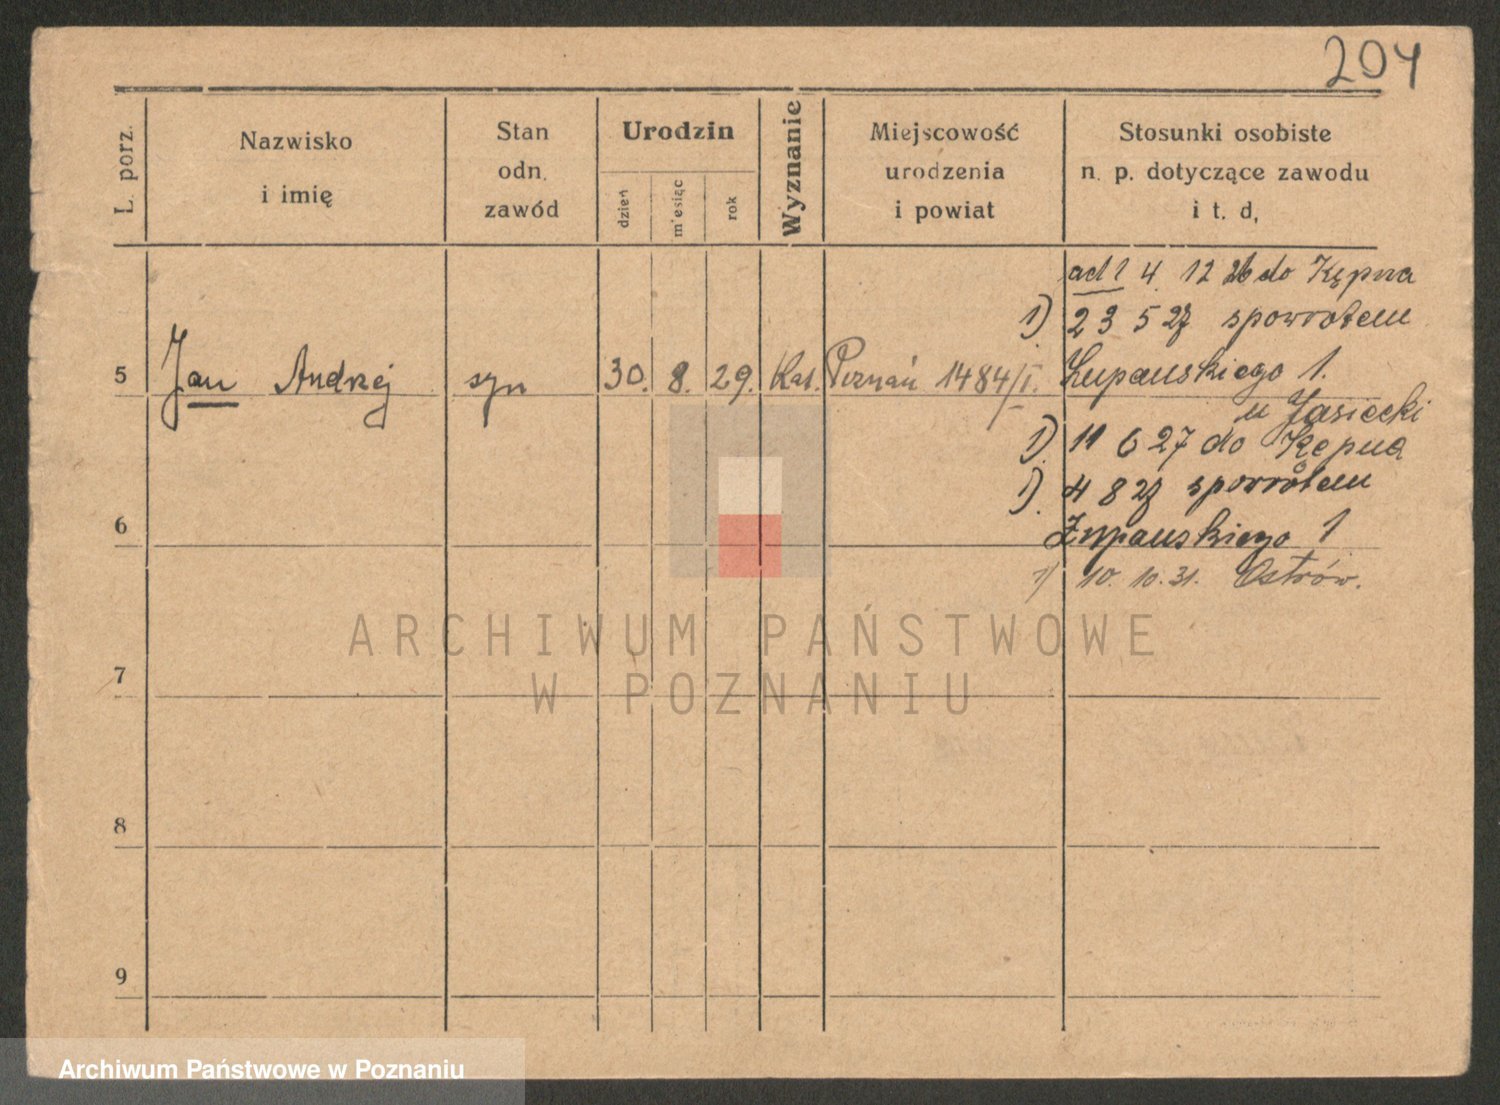 204
L. porz.
Nazwisko
i imię
Stan
odn.
zawód
Urodzin
dzień
m'esiąc
rok
Wyznanie
Miejscowość
urodzenia
i powiat
Stosunki osobiste
n. p. dotyczące zawodu
i t. d,
ad 1 4 12 26 do Kępna
1) 23 5 27 spowrotem
5 Jan Andrzej syn 30. 8. 29. Kat. Poznań 1484/I. Łupańskiego 1.
u Jasiecki
1) 11 6 27 do Kępna
1) 4 8 27 spowrotem
6
Żupańskiego 1
1) 10. 10. 31. Ostrów.
ARCHIWUM PAŃSTWOWE
W POZNANIU
7
8
9
Archiwum Państwowe w Poznaniu